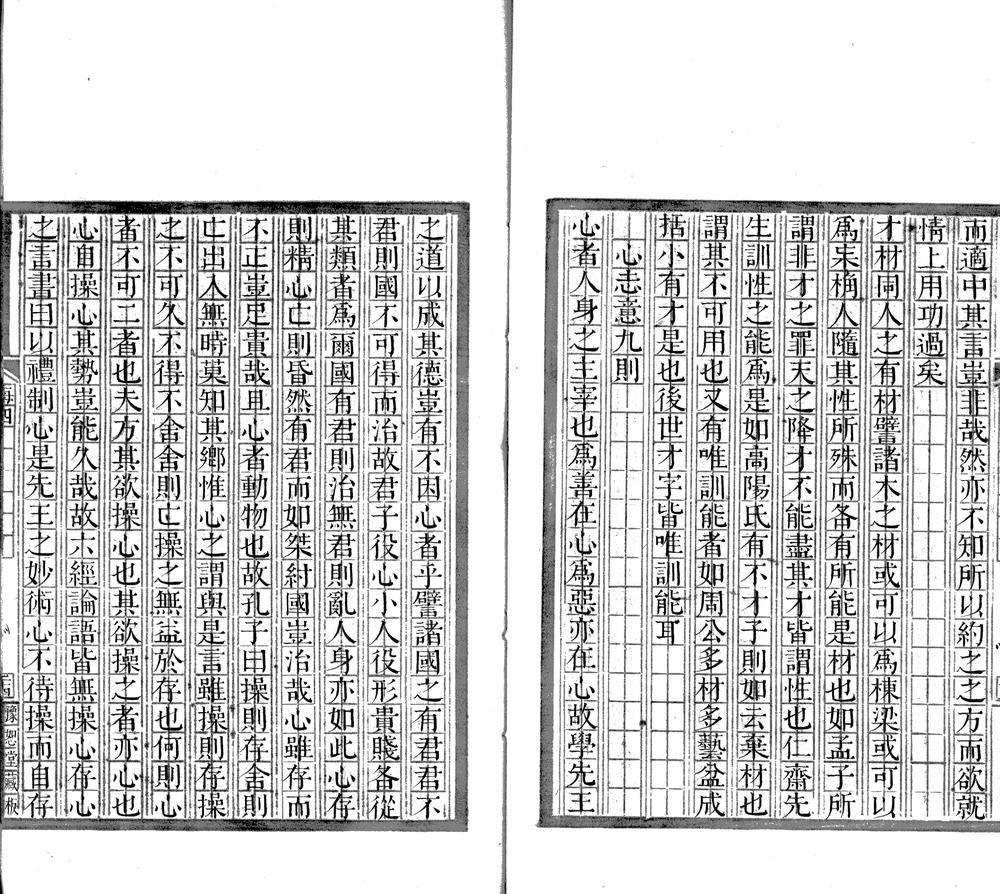 而適中其言豈非哉然亦不知所以約之之方而欲就
情上用功過矣
才材同人之有材譬諸木之材或可以爲棟梁或可以
爲宋桷人隨其性所殊而各有所能是材也如孟子所
謂非才之罪天之降才不能盡其才皆謂性也仁齋先
生訓性之能爲是如高陽氏有不才子則如云棄材也
謂其不可用也又有唯訓能者如周公多材多藝盆成
括小有才是也後世才字皆唯訓能耳
心志意九則
心者人身之主宰也爲善在心爲惡亦在心故學先王
之道以成其德豈有不因心者乎譬諸國之有君君不
君則國不可得而治故君子役心小人役形貴賤各從
其類者爲爾國有君則治無君則亂人身亦如此心存
則精心亡則昏然有君而如桀紂國豈治哉心雖存而
不正豈足貴哉且心者動物也故孔子曰操則存舍則
亡出入無時莫知其鄉惟心之謂與是言雖操則存操
之不可久不得不舍舍則亡操之無益於存也何則心
者不可二者也夫方其欲操心也其欲操之者亦心也
心自操心其勢豈能久哉故六經論語皆無操心存心
之言書曰以禮制心是先王之妙術心不待操而自存
豫恕堂藏板